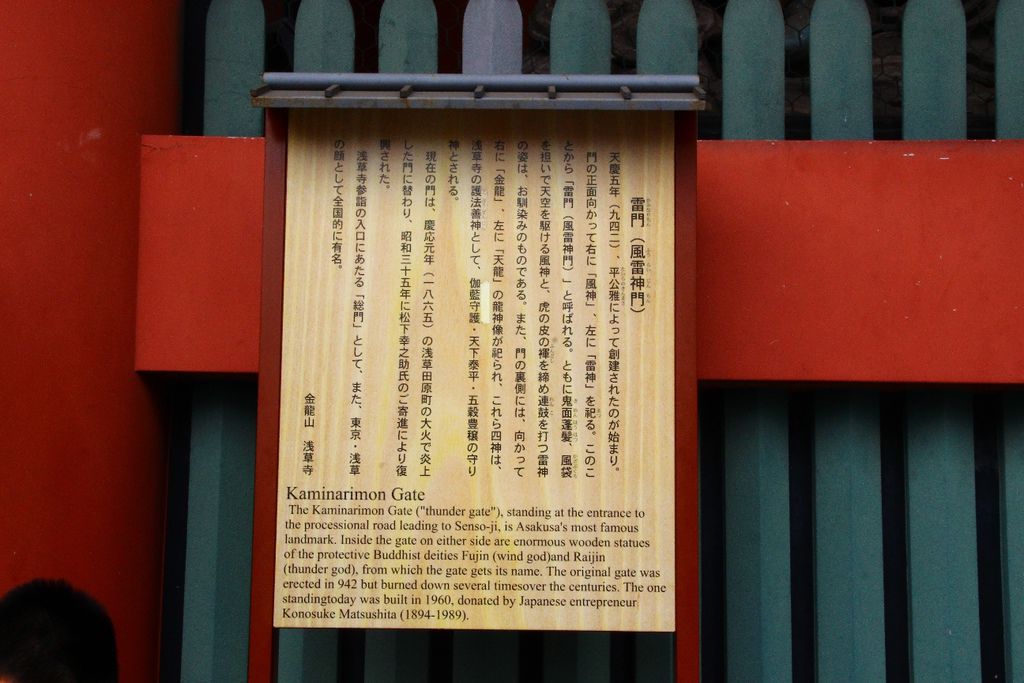 雷門（風雷神門）
天慶五年（九四二）、平公雅によって創建されたのが始まり。
門の正面向かって右に「風神」、左に「雷神」を祀る。このこ
とから「雷門（風雷神門）」と呼ばれる。ともに鬼面蓬髪、風袋
を担いで天空を駆ける風神と、虎の皮の褌を締め連鼓を打つ雷神
の姿は、お馴染みのものである。また、門の裏側には、向かって
右に「金龍」、左に「天龍」の龍神像が祀られ、これら四神は、
浅草寺の護法善神として、伽藍守護・天下泰平・五穀豊穣の守り
神とされる。
現在の門は、慶応元年（一八六五）の浅草田原町の大火で炎上
した門に替わり、昭和三十五年に松下幸之助氏のご寄進により復
興された。
浅草寺参詣の入口にあたる「総門」として、また、東京・浅草
の顔として全国的に有名。
金龍山　浅草寺
Kaminarimon Gate
The Kaminarimon Gate ("thunder gate"), standing at the entrance to
the processional road leading to Senso-ji, is Asakusa's most famous
landmark. Inside the gate on either side are enormous wooden statues
of the protective Buddhist deities Fujin (wind god)and Raijin
(thunder god), from which the gate gets its name. The original gate was
erected in 942 but burned down several timesover the centuries. The one
standingtoday was built in 1960, donated by Japanese entrepreneur
Konosuke Matsushita (1894-1989).